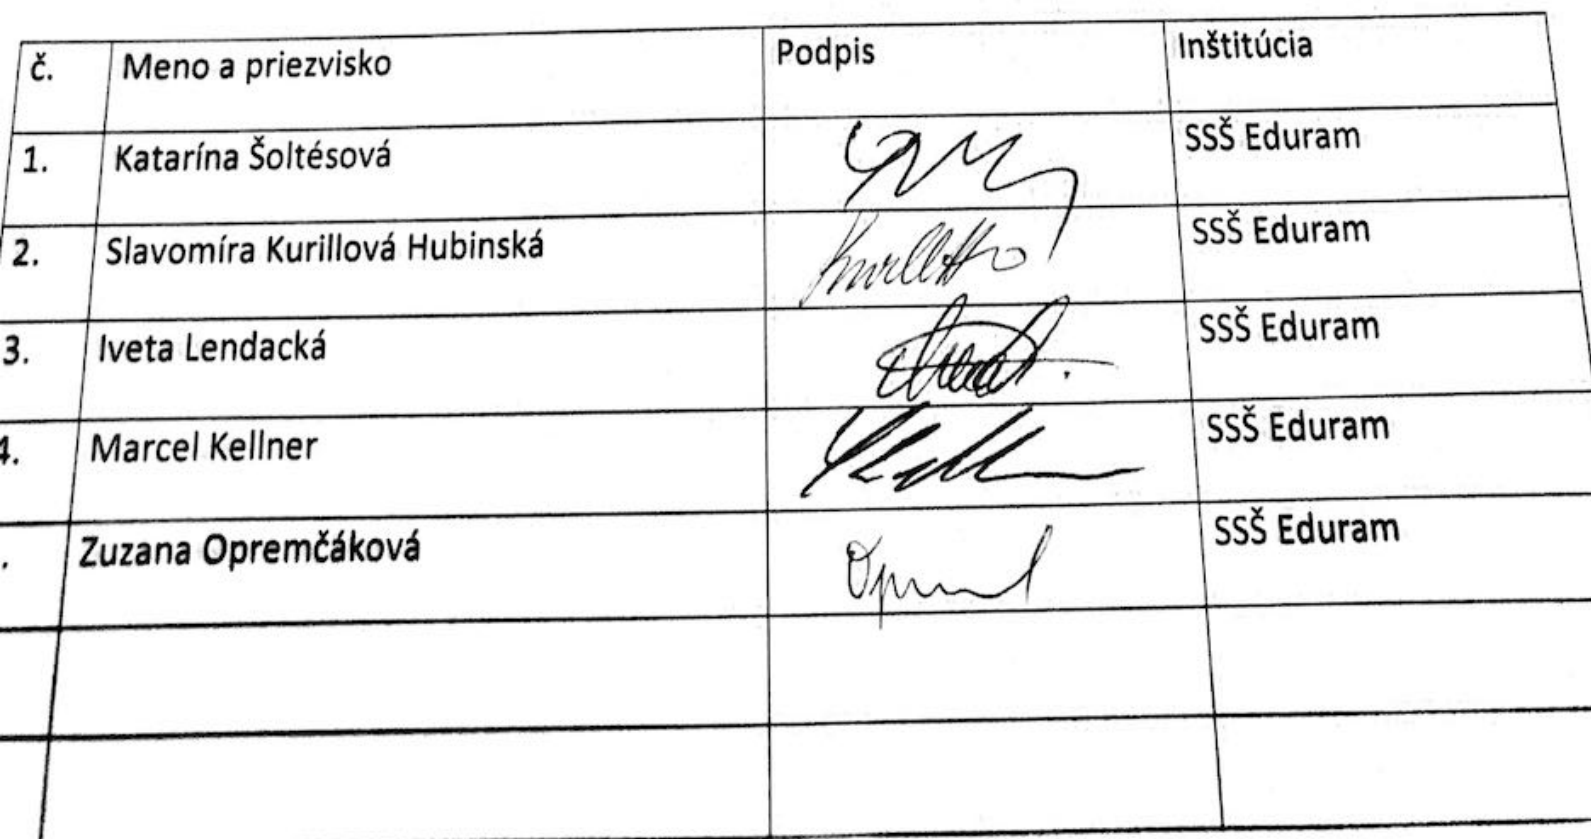 č. Meno a priezvisko Podpis Inštitúcia
1. Katarína Šoltésová SSŠ Eduram
2. Slavomíra Kurillová Hubinská SSŠ Eduram
3. Iveta Lendacká SSŠ Eduram
4. Marcel Kellner SSŠ Eduram
. Zuzana Opremčáková SSŠ Eduram